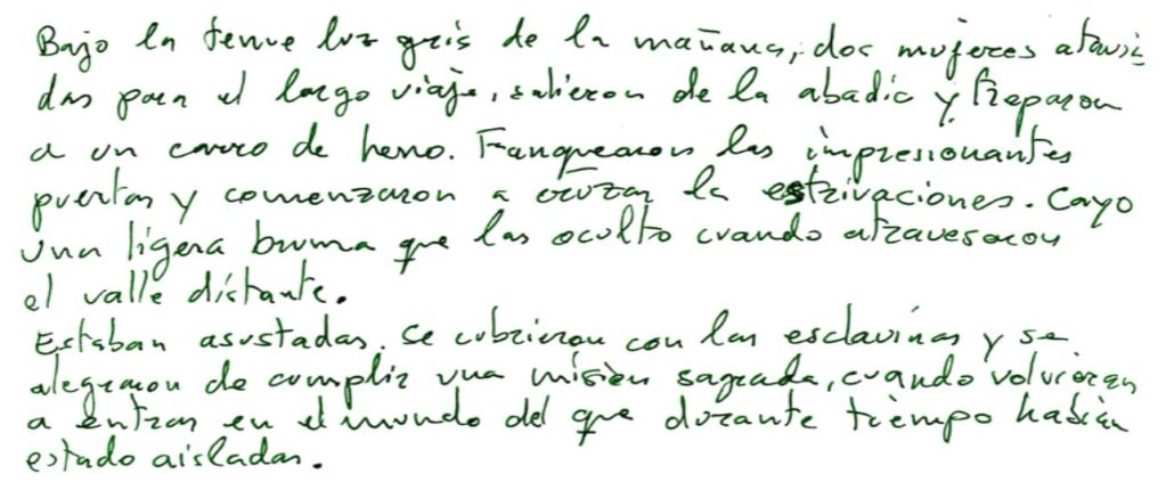 Bajo la tenue luz gris de la mañana, dos mujeres atavia
das para el largo viaje, salieron de la abadia y treparon
a un carro de heno. Franquearon las impresionantes
puertas y comenzaron a cruzar la estrivaciones. Cayo
una ligera bruma que las oculto cuando atravesaron
el valle distante.
Estaban asustadas. Se cubrieron con las esclavinas y se
alegraron de cumplir una misión sagrada, cuando volvieran
a entrar en el mundo del que durante tiempo habían
estado aisladas.